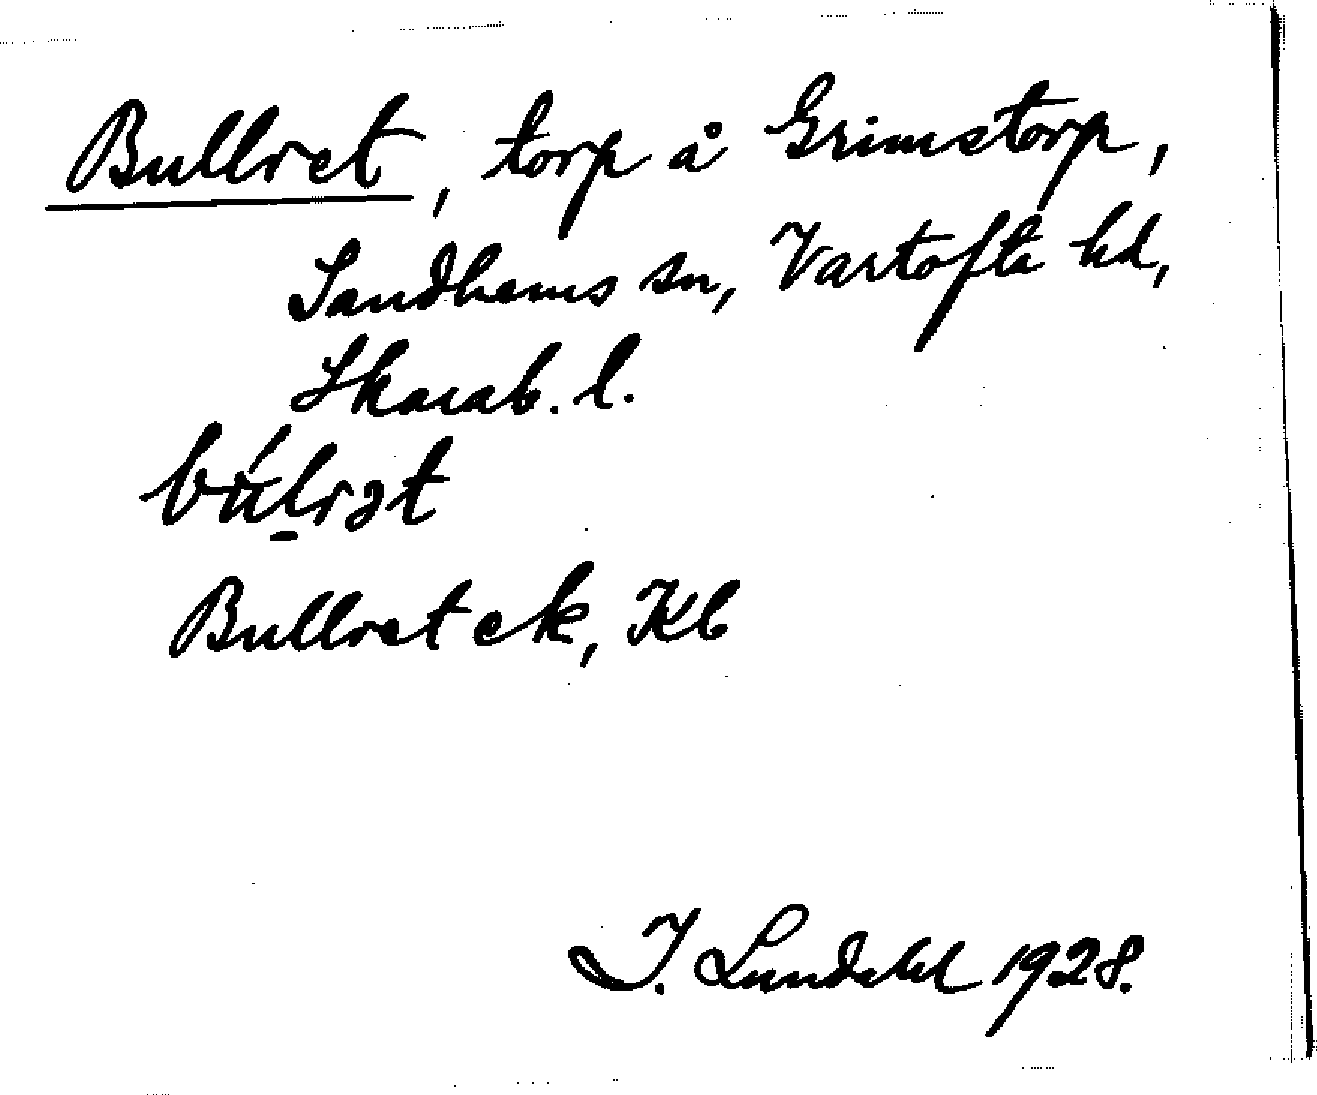 Bullret, torp å Grimstorp,
Sandhems sn, Vartofta hd,
Skarab. l.
bú̵l̠rət
Bullret ek, Kb
I. Lundahl 1928.